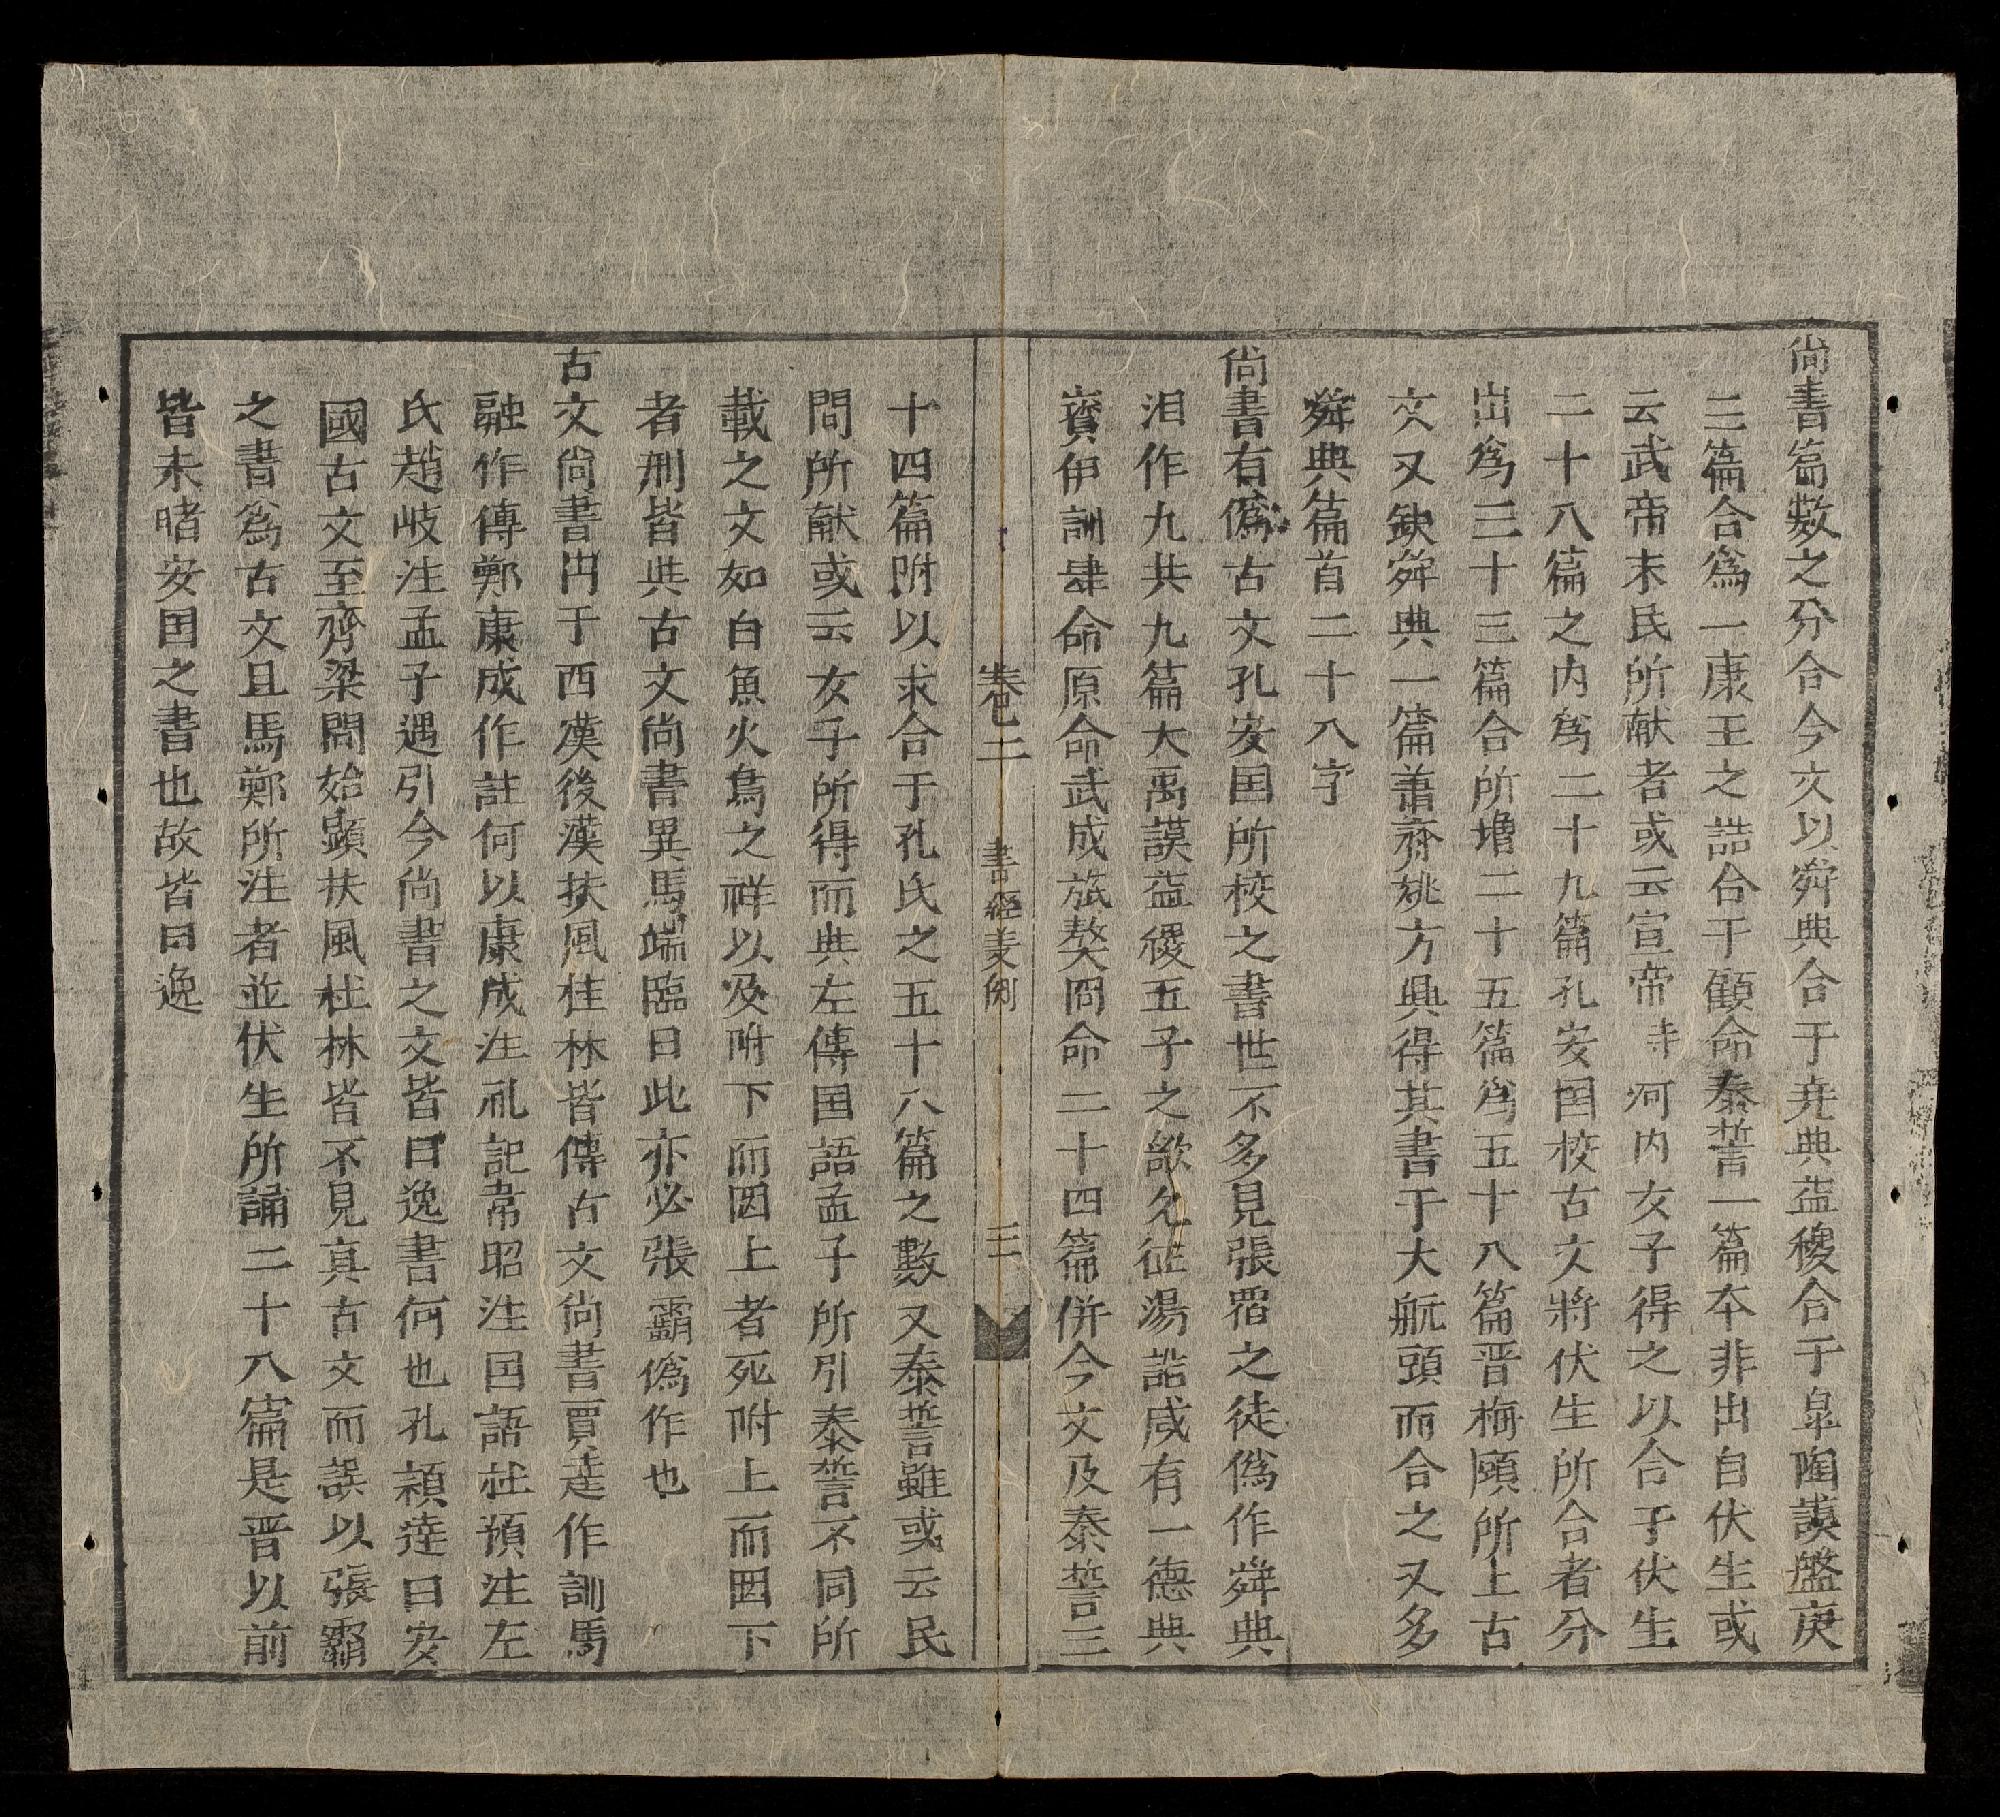 尚書篇數之分合今文以舜典合于尭典益稷合于皐陶謨盤庚
三篇合爲一康王之誥合于顧命泰誓一篇本非出自伏生或
云武帝末民所献者或云宣帝時河内女子得之以合于伏生
二十八篇之内爲二十九篇孔安囯校古文將伏生所合者分
出爲三十三篇合所增二十五篇爲五十八篇晋梅頤所上古
文又缺舜典一篇蕭齊姚方興得其書于大航頭而合之又多
舜典篇首二十八字
尚書有僞古文孔安囯所校之書世不多見張霸之徒僞作舜典
汨作九共九篇大禹謨益稷五子之歌允征湯誥咸有一德典
寳伊訓肆命原命武成旅獒冏命二十四篇併今文及泰誓三
卷二　書經義例　三
十四篇附以求合于孔氏之五十八篇之數又泰誓雖或云民
間所献或云女子所得而與左傳囯語孟子所引泰誓不同所
載之文如白魚火烏之祥以及附下而罔上者死附上而罔下
者刑皆與古文尚書異馬端臨曰此亦必張霸僞作也
古文尚書出于西漢後漢扶風杜林皆傳古文尚書賈逵作訓馬
融作傳鄭康成作註何以康成注礼記韋昭注囯語杜預注左
氏趙岐注孟子遇引今尚書之文皆曰逸書何也孔頴逹曰安
國古文至齊梁間始顕扶風杜林皆不見真古文而誤以張霸
之書爲古文且馬鄭所注者並伏生所誦二十八篇是晋以前
皆未睹安囯之書也故皆曰逸